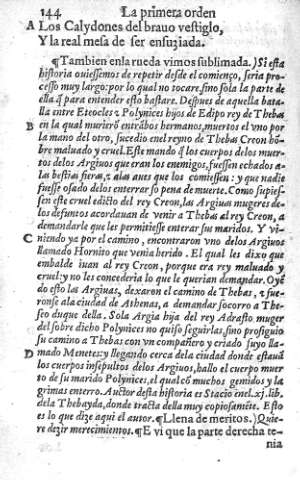 144 La primera orden
A Los Calydones del brauo vestiglo,
Y la real mesa de ser ensuziada.
¶Tambien en la rueda vimos sublimada.) Si esta
historia ouiessemos de repetir desde el comienço, seria pro-
cesso muy largo: por lo qual no tocare, sino sola la parte de
ella q̃ para entender esto bastare. Despues de aquella bata-
lla entre Eteocles z Polynices hijos de Edipo rey de Thebas
B en la qual muriero͂ entrãbos hermanos, muertos el vno por
la mano del otro, sucedio en el reyno de Thebas Creon hõ-
bre maluado y cruel. Este mando q̃ los cuerpos de los muer-
tos delos Argiuos que eran los enemigos, fuessen echados a
las bestias fieras, z alas aues que los comiessen: y que nadie
fuesse osado delos enterrar so pena de muerte. Como supies-
sen este cruel edicto del rey Creon, las Argiuas mugeres de-
los defuntos acordauan de venir a Thebas al rey Creon, a
demandarle que les permitiesse enterrar sus maridos. Y vi-
C niendo ya por el camino, encontraron vno delos Argiuos
llamado Hornito que venia herido. El qual les dixo que
embalde iuan al rey Creon, porque era rey maluado y
cruel: y no les concederia lo que le querian demandar. Oyẽ
do esto las Argiuas, dexaron el camino de Thebas, z fue-
ronse ala ciudad de Athenas, a demandar socorro a The-
seo duque della. Sola Argia hija del rey Adrasto muger
del sobre dicho Polynices no quiso seguirlas, sino prosiguio
su camino a Thebas con vn compañero y criado suyo lla-
D mado Menetes: y llegando cerca dela ciudad donde estauã
los cuerpos insepultos delos Argiuos, hallo el cuerpo muer
to de su marido Polynices, el qual cõ muchos gemidos y la
grimas enterro. Auctor desta historia es Stacio enel .xj. lib.
dela Thebayda, donde tracta della muy copiosamẽte. Esto
es lo que dize aqui el autor. ¶Llena de meritos.) Quie-
re dezir merecimientos. ¶E vi que la parte derecha te-
nia